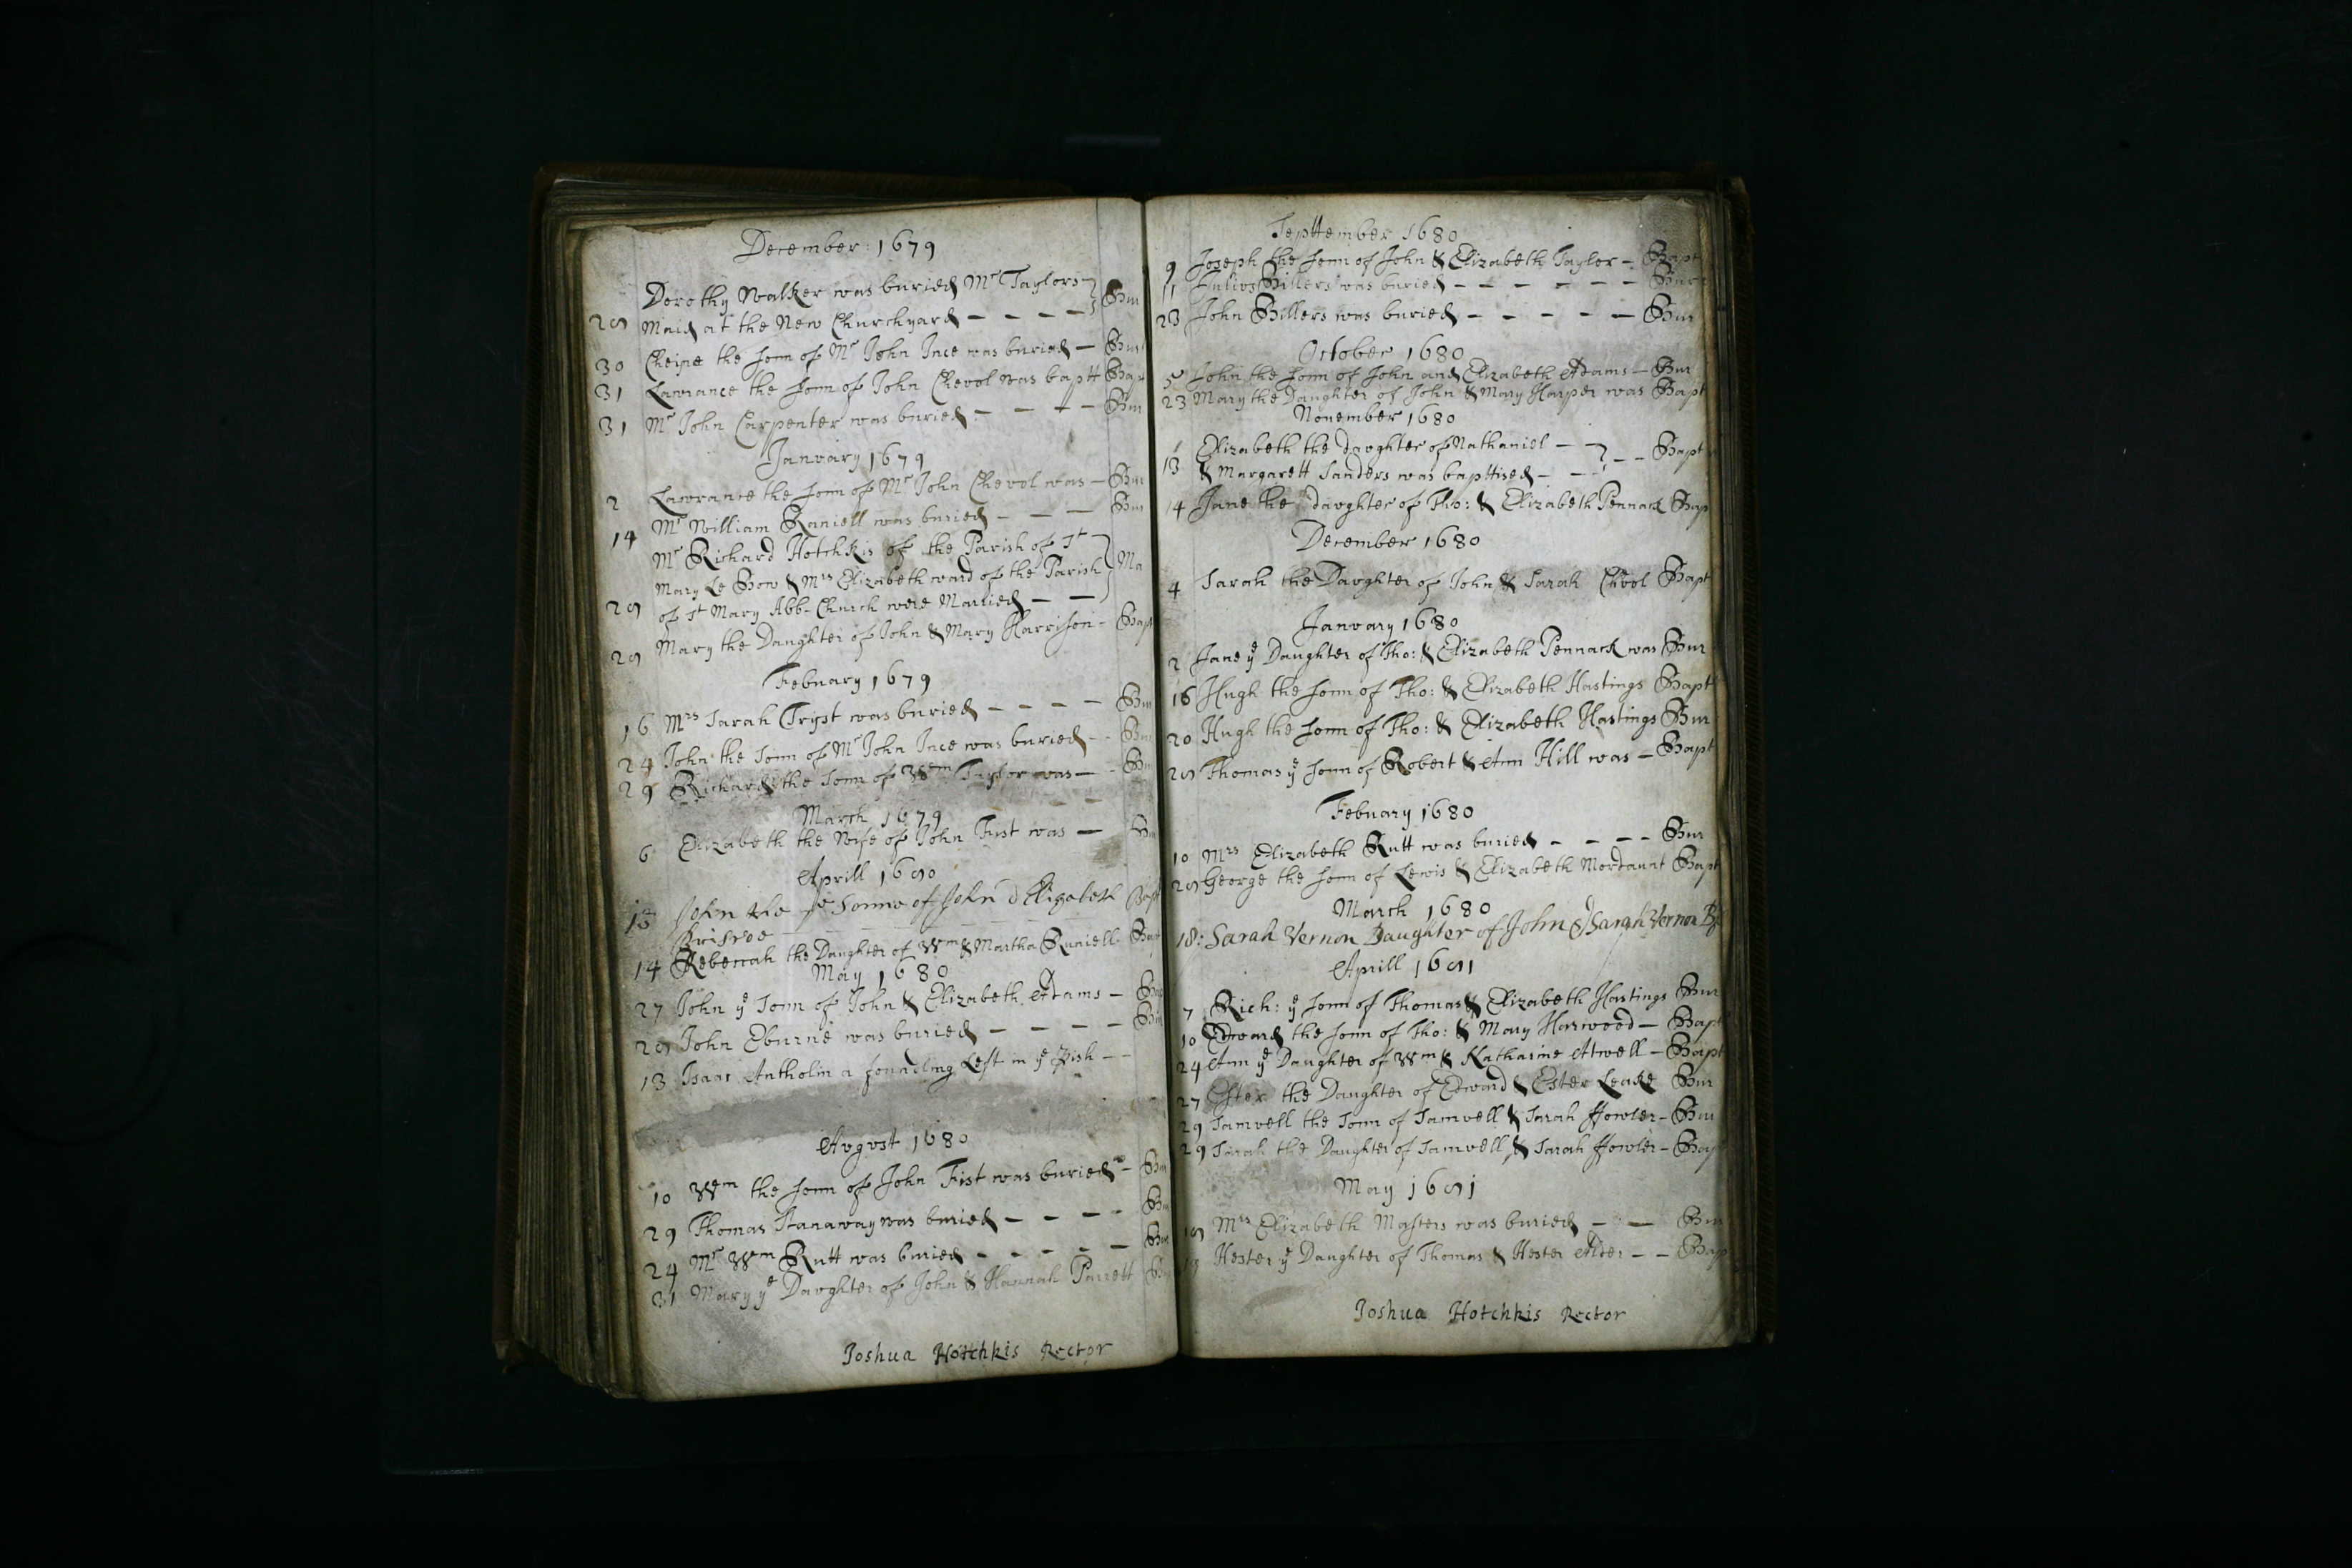 December: 1679
Dorothy Walker was buried Mr Taylors
28 Maid at the New Churchyard — — — — Bur
30 Cheine the sonn of Mr John Ince was buried — Bur
31 Lawrance the sonn of John Chevol was baptt Bap
31 Mr John Carpenter was buried — — — — Bur
January 1679
2 Lawrance the sonn of Mr John Chevol was — Bur
14 Mr William Raniell was buried — — — Bur
Mr Richard Hotchkis of the Parish of St
Mary Le Bow & Mrs Elizabeth ward of the Parish Ma
28 of St Mary Abb-Church were Married — —
28 Mary the Daughter of John & Mary Harrison - Bapt
Febuary 1679
16 Mrs Sarah Tryst was buried — — — — Bur
24 John the Sonn of Mr John Ince was buried - - Bur
29 Richard the Sonn of Wm Taylor was — - Bu
March 1679
6 Elizabeth the Wife of John Fust was — Bu
Aprill 1680
13 John the ye Sonne of John & Elizabeth Bapt
Briscoe
14 Rebeccah the Daughter of Wm & Martha Runiell Bap
May 1680
27 John ye Sonn of John & Elizabeth Adams — Bap
28 John Eburne was buried — — — — Bur
13 Isaac Antholin a foundling Left in ye Pish - -
Avgvst 1680
10 Wm the sonn of John Fist was buried - Bur
29 Thomas Stanaway was buried — — — - Bu
24 Mr Wm Rutt was buried — — — — — Bur
31 Mary ye Davghter of John & Hannah Parrett B
Joshua Hotchkis Rector
Septtember 1680
9 Joseph the sonn of John & Elizabeth Taylor — Bapt
11 Julivs Billers was buried — — — — — — Bur
23 John Billers was buried — — — — — Bur
October 1680
5 John the sonn of John and Elizabeth Adams — Bur
23 Mary the Daughter of John & Mary Harper was Bapt
Nouember 1680
Elizabeth the davghter of Nathaniel —
13 & Margarett Sanders was bapttised — — - - Bapt
14 Jane the davghter of Tho: & Elizabeth Pennack Bap
December 1680
4 Sarah the Davghter of John & Sarah Chevol Bapt
Janvary 1680
2 Jane ye Daughter of Tho: & Elizabeth Pennack was Bur
16 Hugh the sonn of Tho: & Elizabeth Hastings Bapt
20 Hugh the sonn of Tho: & Elizabeth Hastings Bur
28 Thomas ye sonn of Robert & Ann Hill was — Bapt
Febuary 1680
10 Mrs Elizabeth Rutt was buried - — — - - Bur
28 George the sonn of Lewis & Elizabeth Mordaunt Bapt
March 1680
18: Sarah Vernon Daughter of John & Sarah Vernon Bp
Aprill 1681
7 Rich: ye sonn of Thomas & Elizabeth Hastings Bur
10 Edward the sonn of Tho: & Mary Harwood — Bapt
24 Ann ye Daughter of Wm & Katharine Atwell — Bapt
27 Ester the Daughter of Edward & Ester Leake Bur
29 Samvell the Sonn of Samvell & Sarah ffowler — Bur
29 Sarah the Daughter of Samvell & Sarah ffowler — Bap
May 1681
18 Mrs Elizabeth Masters was buried — — Bur
13 Hester ye Daughter of Thomas & Hester Alder — — Bap
Joshua Hotchkis Rector